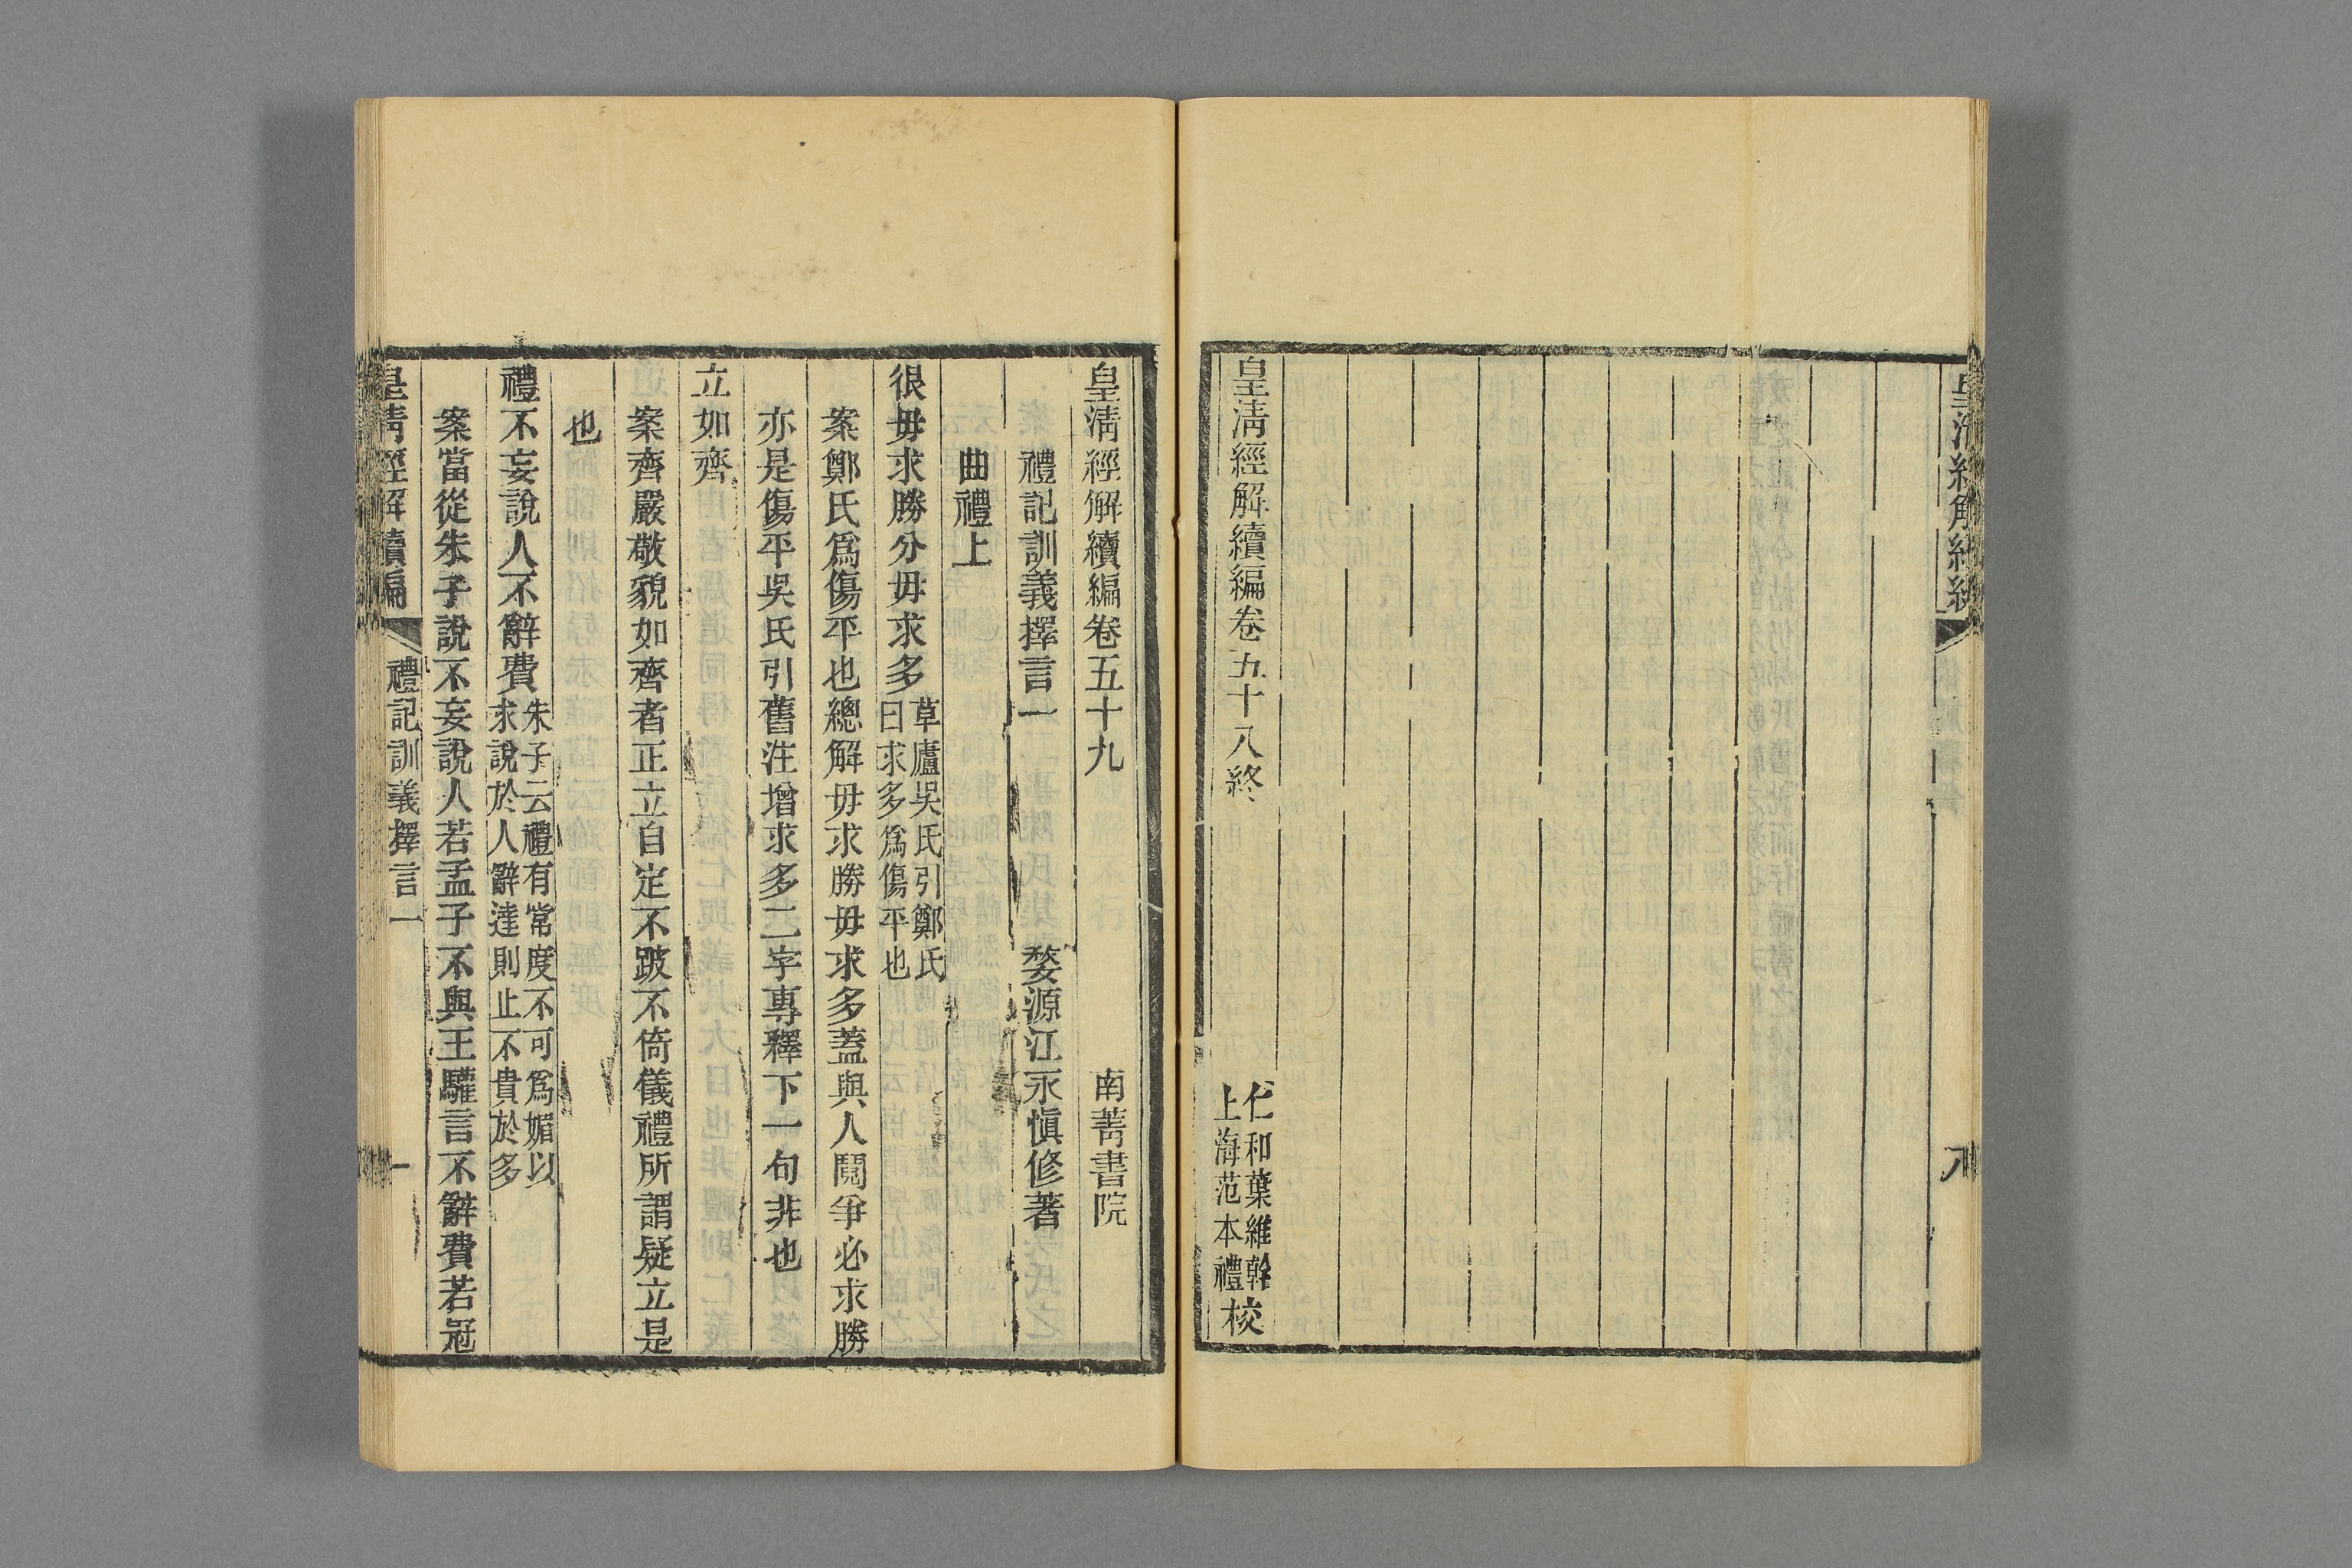 皇清經解續編卷五十八終
仁和葉維幹
上海范本禮
校
皇清經解續編卷五十九
南菁書院
禮記訓義擇言一
婺源江永愼修著
曲禮上
很毋求勝分毋求多
草廬吳氏引鄭氏
曰求多爲傷平也
案鄭氏爲傷平也總解毋求勝毋求多蓋與人鬩爭必求勝
亦是傷平吳氏引舊注增求多二字專釋下一句非也
立如齊
案齊嚴敬貌如齊者正立自定不跛不倚儀禮所謂疑立是
也
禮不妄說人不辭費
朱子云禮有常度不可爲媚以
求說於人辭達則止不貴於多
案當從朱子說不妄說人若孟子不與王驩言不辭費若冠
皇清經解續編
禮記訓義擇言一
一